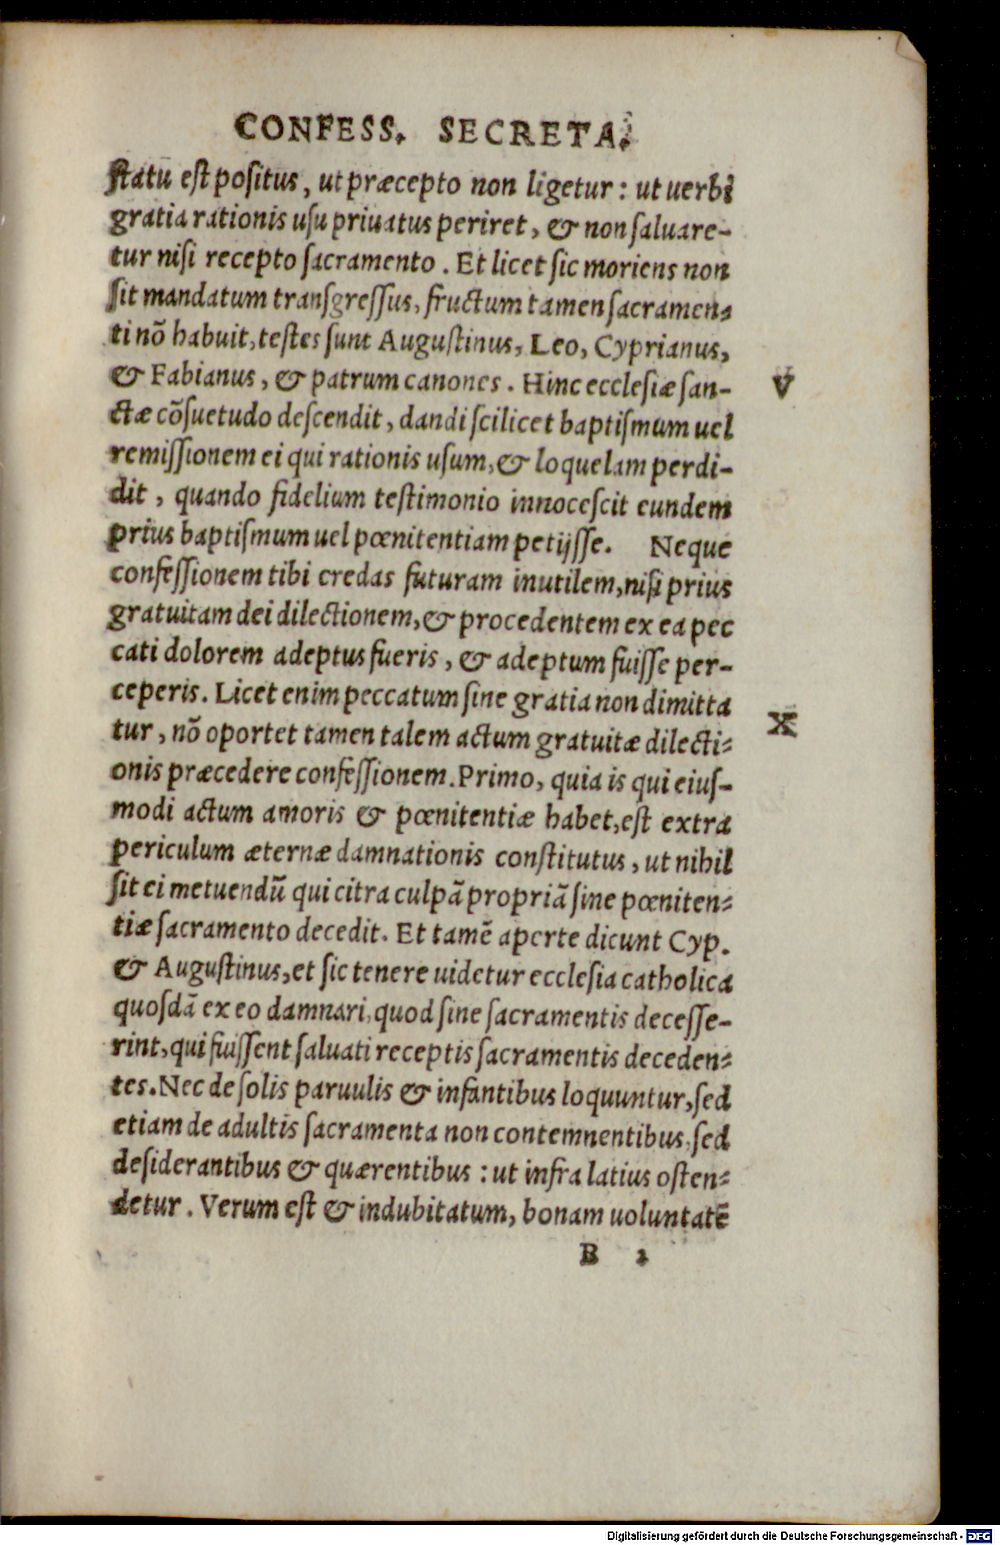 CONFESS. SECRETA.
ſtatū eſt poſitus, ut præcepto non ligetur: ut uerbi
gratia rationis uſu priuatus periret, & non ſaluare-
tur niſi recepto ſacramento. Et licet ſic moriens non
ſit mandatum tranſgreſſus, fructum tamen ſacramen-
ti nō habuit, teſtes ſunt Auguſtinus, Leo, Cyprianus,
& Fabianus, & patrum canones. Hinc eccleſiæ ſan-
V
ctæ cōſuetudo deſcendit, dandi ſcilicet baptiſmum uel
remiſſionem ei qui rationis uſum, & loquelam perdi-
dit, quando fidelium teſtimonio innoceſcit eundem
prius baptiſmum uel pœnitentiam petijſſe. Neque
confeſſionem tibi credas futuram inutilem, niſi prius
gratuitam dei dilectionem, & procedentem ex ea pec
cati dolorem adeptus fueris, & adeptum fuiſſe per-
ceperis. Licet enim peccatum ſine gratia non dimitta
X
tur, nō oportet tamen talem actum gratuitæ dilecti-
onis præcedere confeſſionem. Primo, quia is qui eiuſ-
modi actum amoris & pœnitentiæ habet, eſt extra
periculum æternæ damnationis conſtitutus, ut nihil
ſit ei metuendū qui citra culpā propriā ſine pœniten-
tiæ ſacramento decedit. Et tamē aperte dicunt Cyp.
& Auguſtinus, et ſic tenere uidetur eccleſia catholica
quoſdā ex eo damnari, quod ſine ſacramentis deceſſe-
rint, qui fuiſſent ſaluati receptis ſacramentis deceden-
tes. Nec de ſolis paruulis & infantibus loquuntur, ſed
etiam de adultis ſacramenta non contemnentibus, ſed
deſiderantibus & quærentibus: ut infra latius oſten-
detur. Verum eſt & indubitatum, bonam uoluntatē
B 2
Digitalisierung gefördert durch die Deutsche Forschungsgemeinschaft - DFG